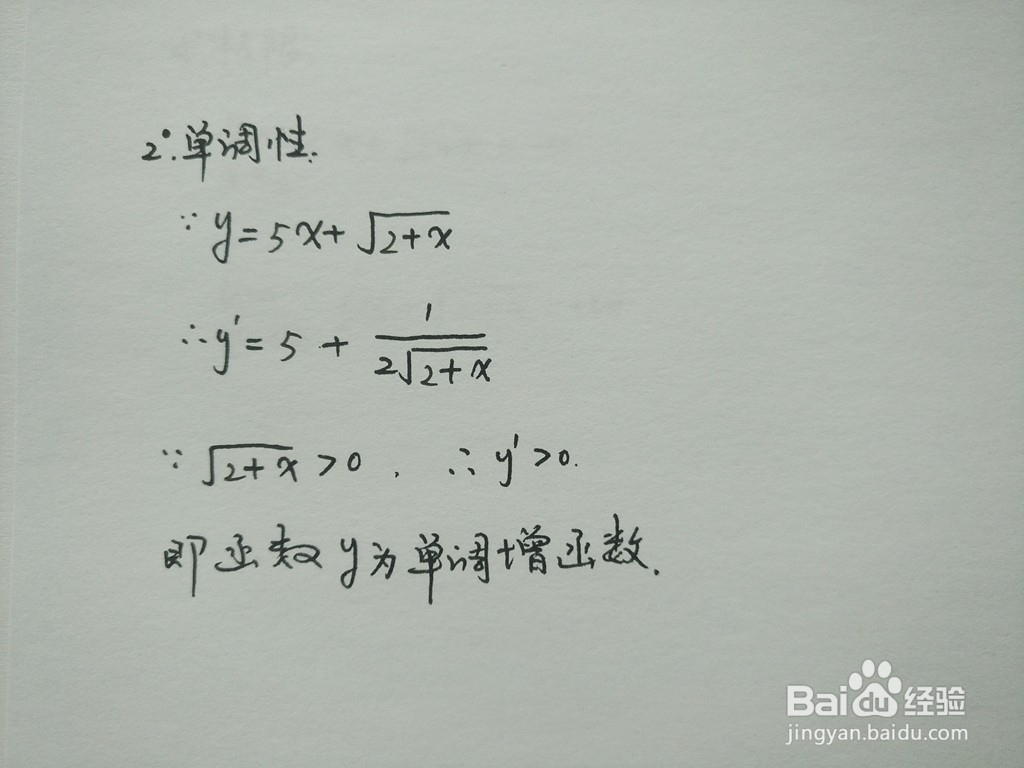 2°.单调性:
∵ y = 5x + √(2+x)
∴ y' = 5 + 1/(2√(2+x))
∵ √(2+x) > 0 , ∴ y' > 0.
即函数y为单调增函数.
Bai du 经验
jingyan.baidu.com